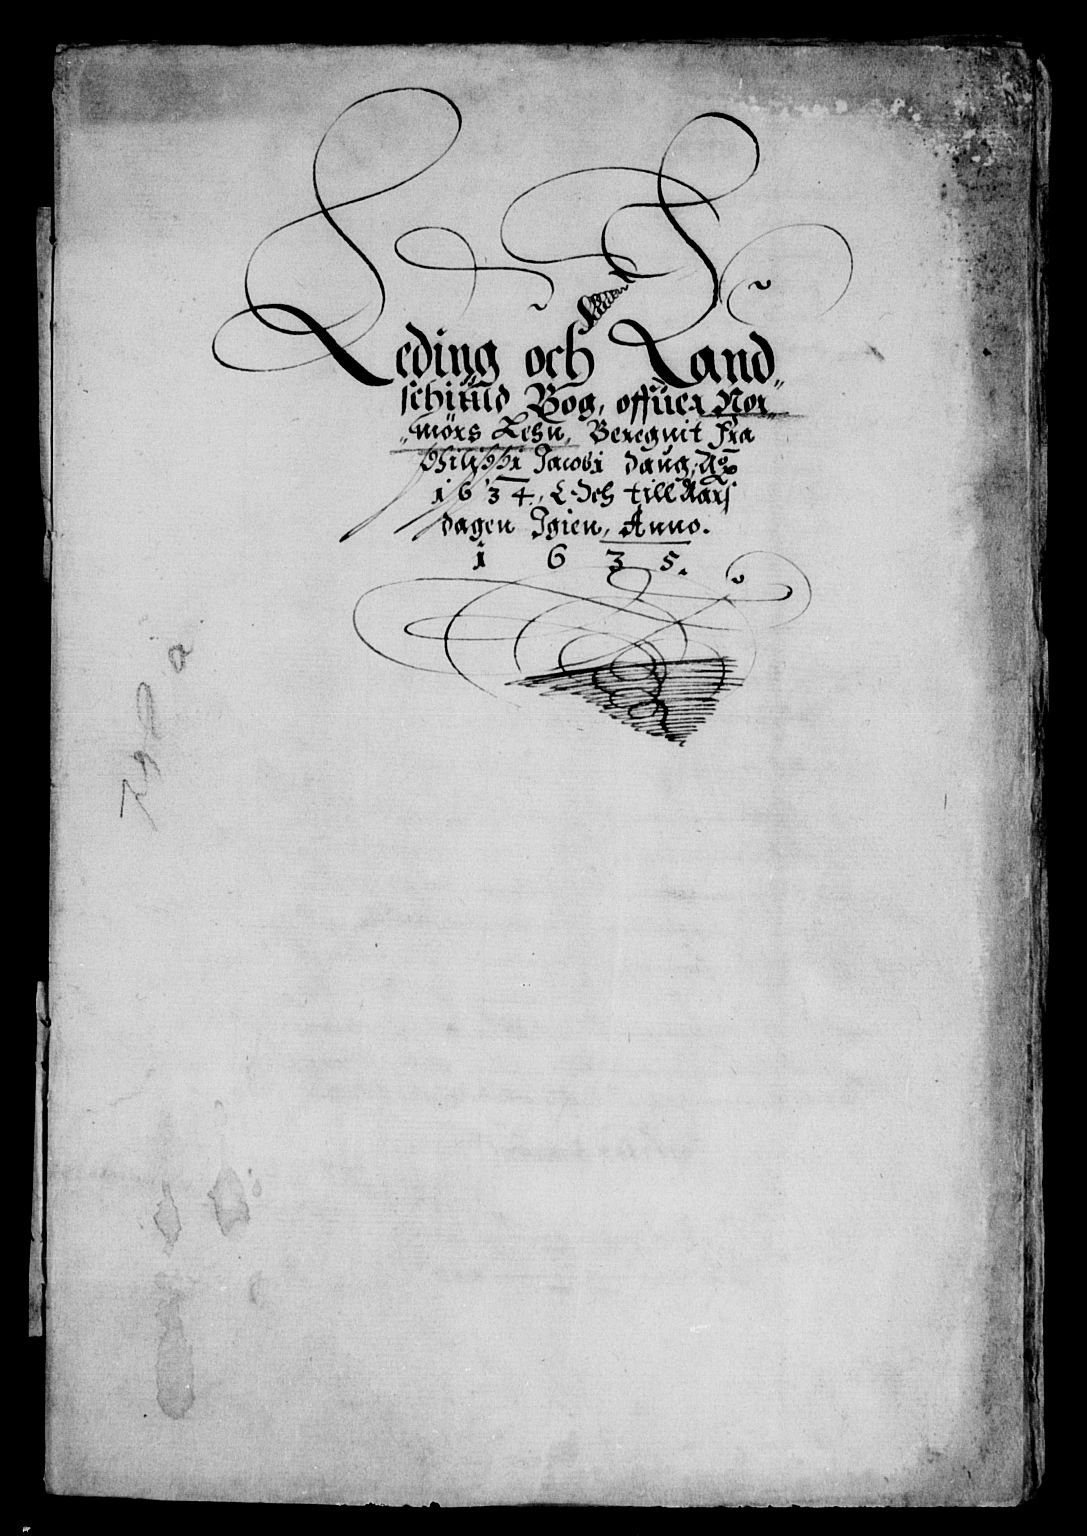 Leding och Land„
schÿuld Bog, offuer Nor„
„mörs Lehn, Beregnit fra
Philippi Jacobi daug, Ao
1634, Och till Aars
dagen Igien, Anno.
1635.